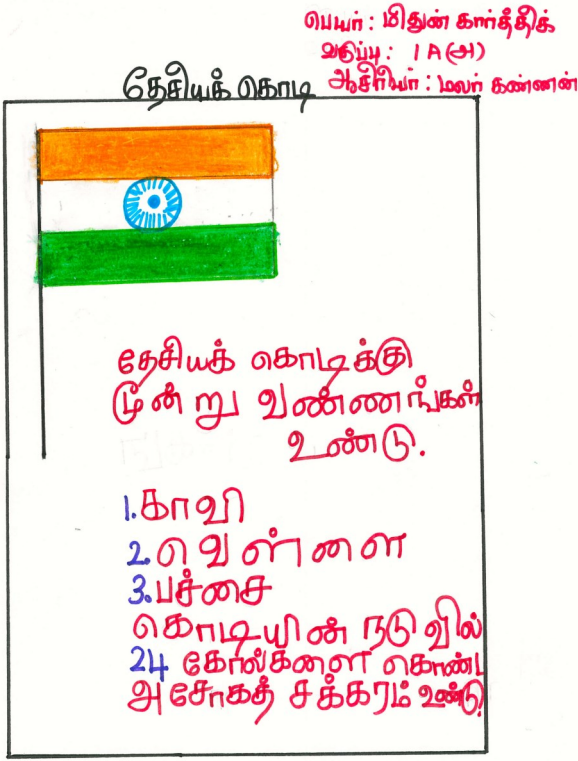 பெயர் : மிதுன் கார்த்திக்
வகுப்பு : 1 A (அ)
ஆசிரியர் : மலர் கண்ணன்
தேசியக் கொடி
தேசியக் கொடிக்கு
மூன்று வண்ணங்கள்
உண்டு.
1. காவி
2. வெள்ளை
3. பச்சை
கொடியின் நடுவில்
24 கோல்களை கொண்ட
அசோகத் சக்கரம் உண்டு